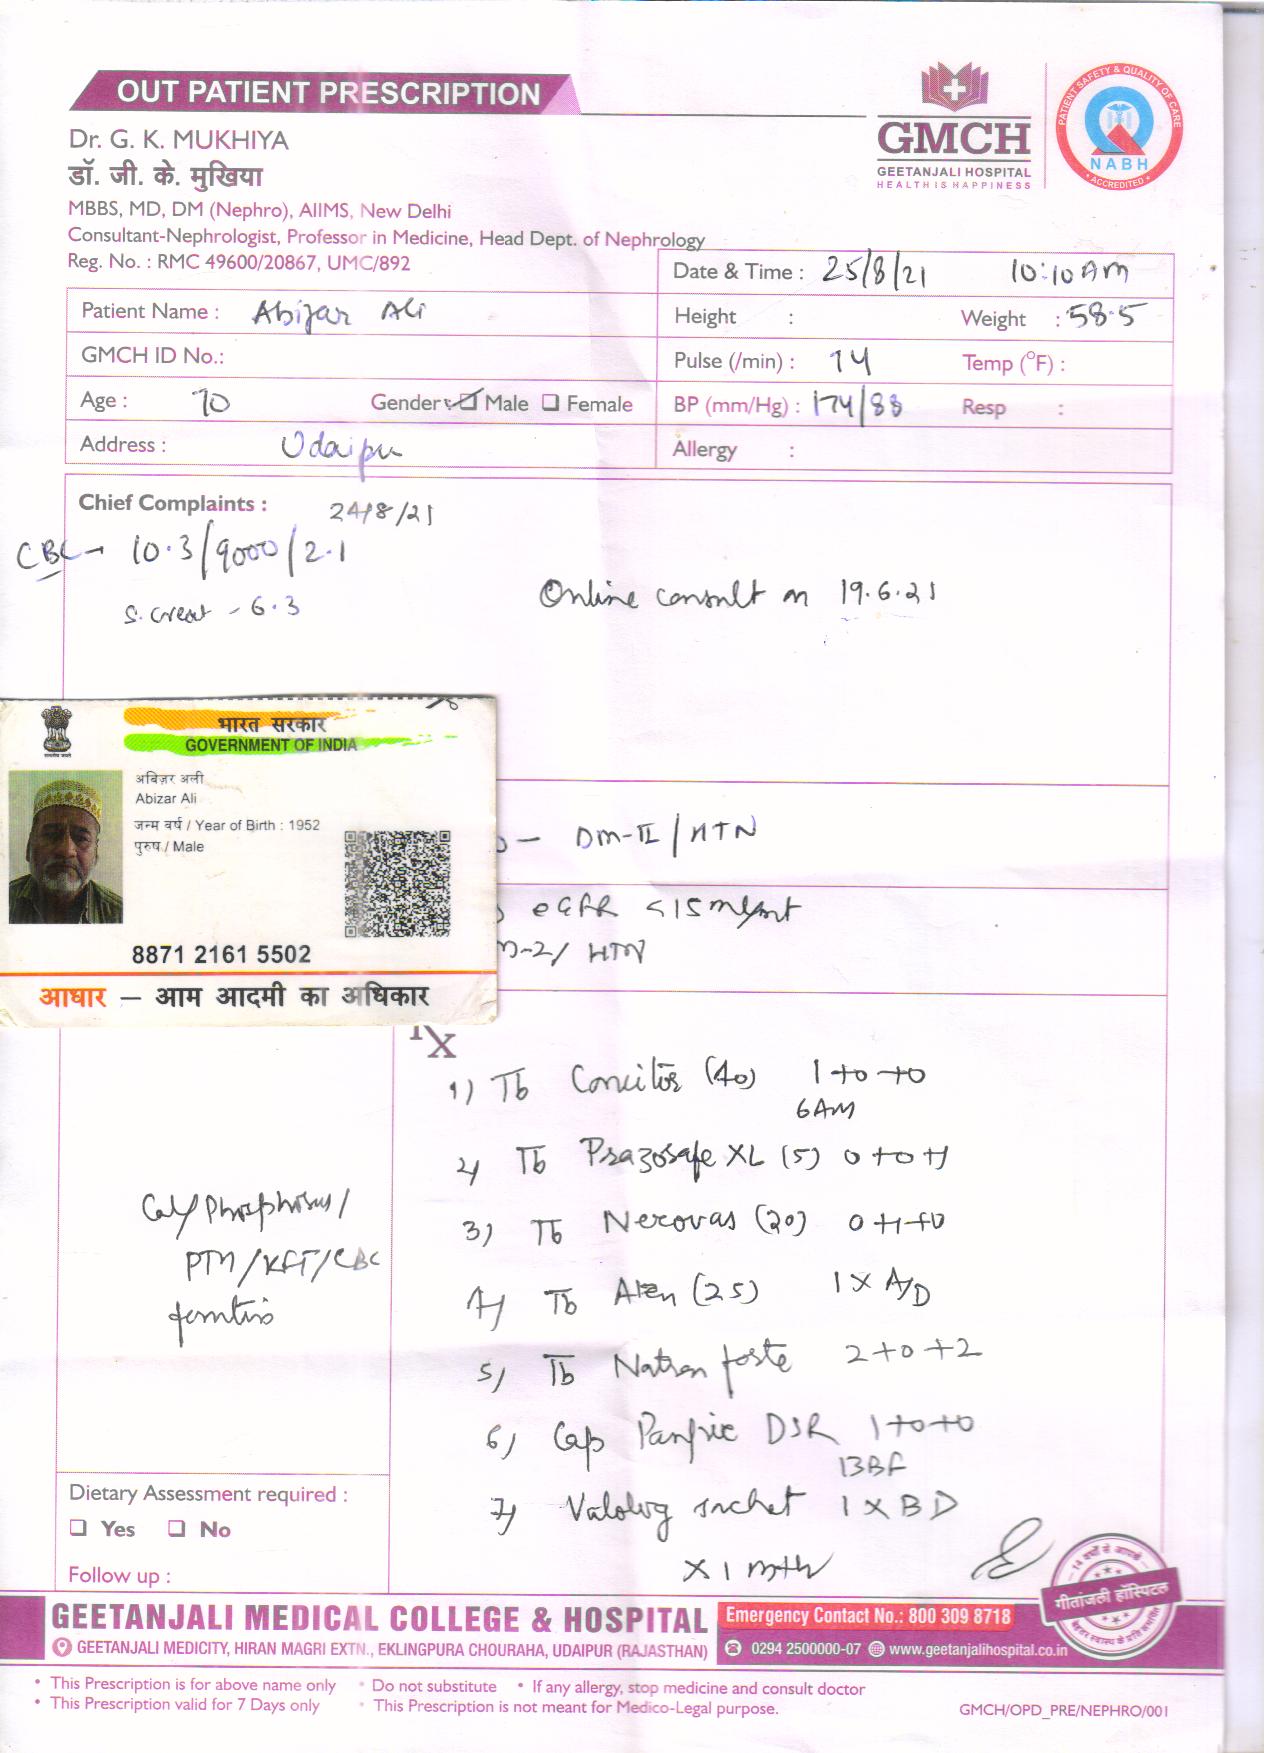 OUT PATIENT PRESCRIPTION
GMCH
GEETANJALI HOSPITAL
HEALTH IS HAPPINESS
PATIENT SAFETY & QUALITY OF CARE
NABH
ACCREDITED
Dr. G. K. MUKHIYA
डॉ. जी. के. मुखिया
MBBS, MD, DM (Nephro), AIIMS, New Delhi
Consultant-Nephrologist, Professor in Medicine, Head Dept. of Nephrology
Reg. No. : RMC 49600/20867, UMC/892
Date & Time : 25/8/21 10:10 AM
Patient Name : Abizar Ali
Height : Weight : 58.5
GMCH ID No.:
Pulse (/min) : 74 Temp (°F) :
Age : 70 Gender : Male Female
BP (mm/Hg) : 174/88 Resp :
Address : Udaipur
Allergy :
Chief Complaints : 24/8/21
CBC → 10.3/9000/2.1
S. Creat - 6.3
Online consult on 19.6.21
भारत सरकार
GOVERNMENT OF INDIA
अबिज़र अली
Abizar Ali
जन्म वर्ष / Year of Birth : 1952
पुरुष / Male
8871 2161 5502
आधार – आम आदमी का अधिकार
— DM-II / HTN
eGFR <15 ml/mt
-2/ HTN
Rx
1) Tb (40) 1+0+0
6AM
2) Tb Prazosafe XL (5) 0+0+1
3) Tb Nerovas (20) 0+1+0
4) Tb Aten (25) 1 X A/D
5) Tb forte 2+0+2
6) Cap DSR 1+0+0
BBF
7) sachet 1 X BD
X 1 mth
Cal/Phosphorus/
PTH/KFT/CBC
Dietary Assessment required :
Yes No
Follow up :
14 वर्षों से आपके
गीतांजली हॉस्पिटल
GEETANJALI MEDICAL COLLEGE & HOSPITAL
Emergency Contact No.: 800 309 8718
GEETANJALI MEDICITY, HIRAN MAGRI EXTN., EKLINGPURA CHOURAHA, UDAIPUR (RAJASTHAN)
0294 2500000-07 www.geetanjalihospital.co.in
• This Prescription is for above name only • Do not substitute • If any allergy, stop medicine and consult doctor
• This Prescription valid for 7 Days only • This Prescription is not meant for Medico-Legal purpose.
GMCH/OPD_PRE/NEPHRO/001